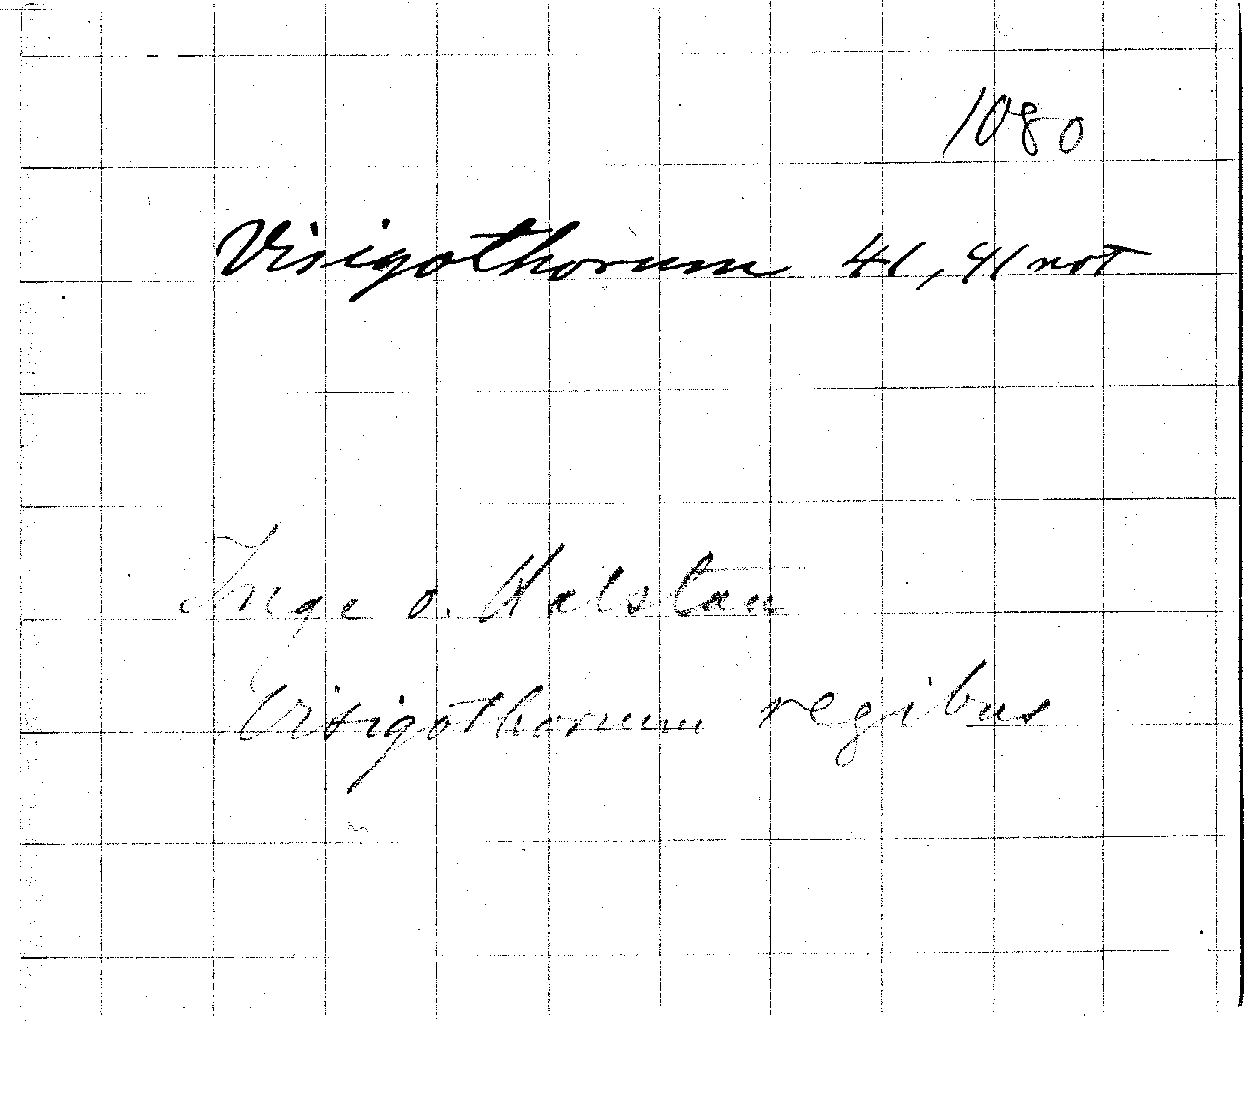 1080
Visigothorum 41, 41 not
Inge o. Halstan
Visigothorum regibus